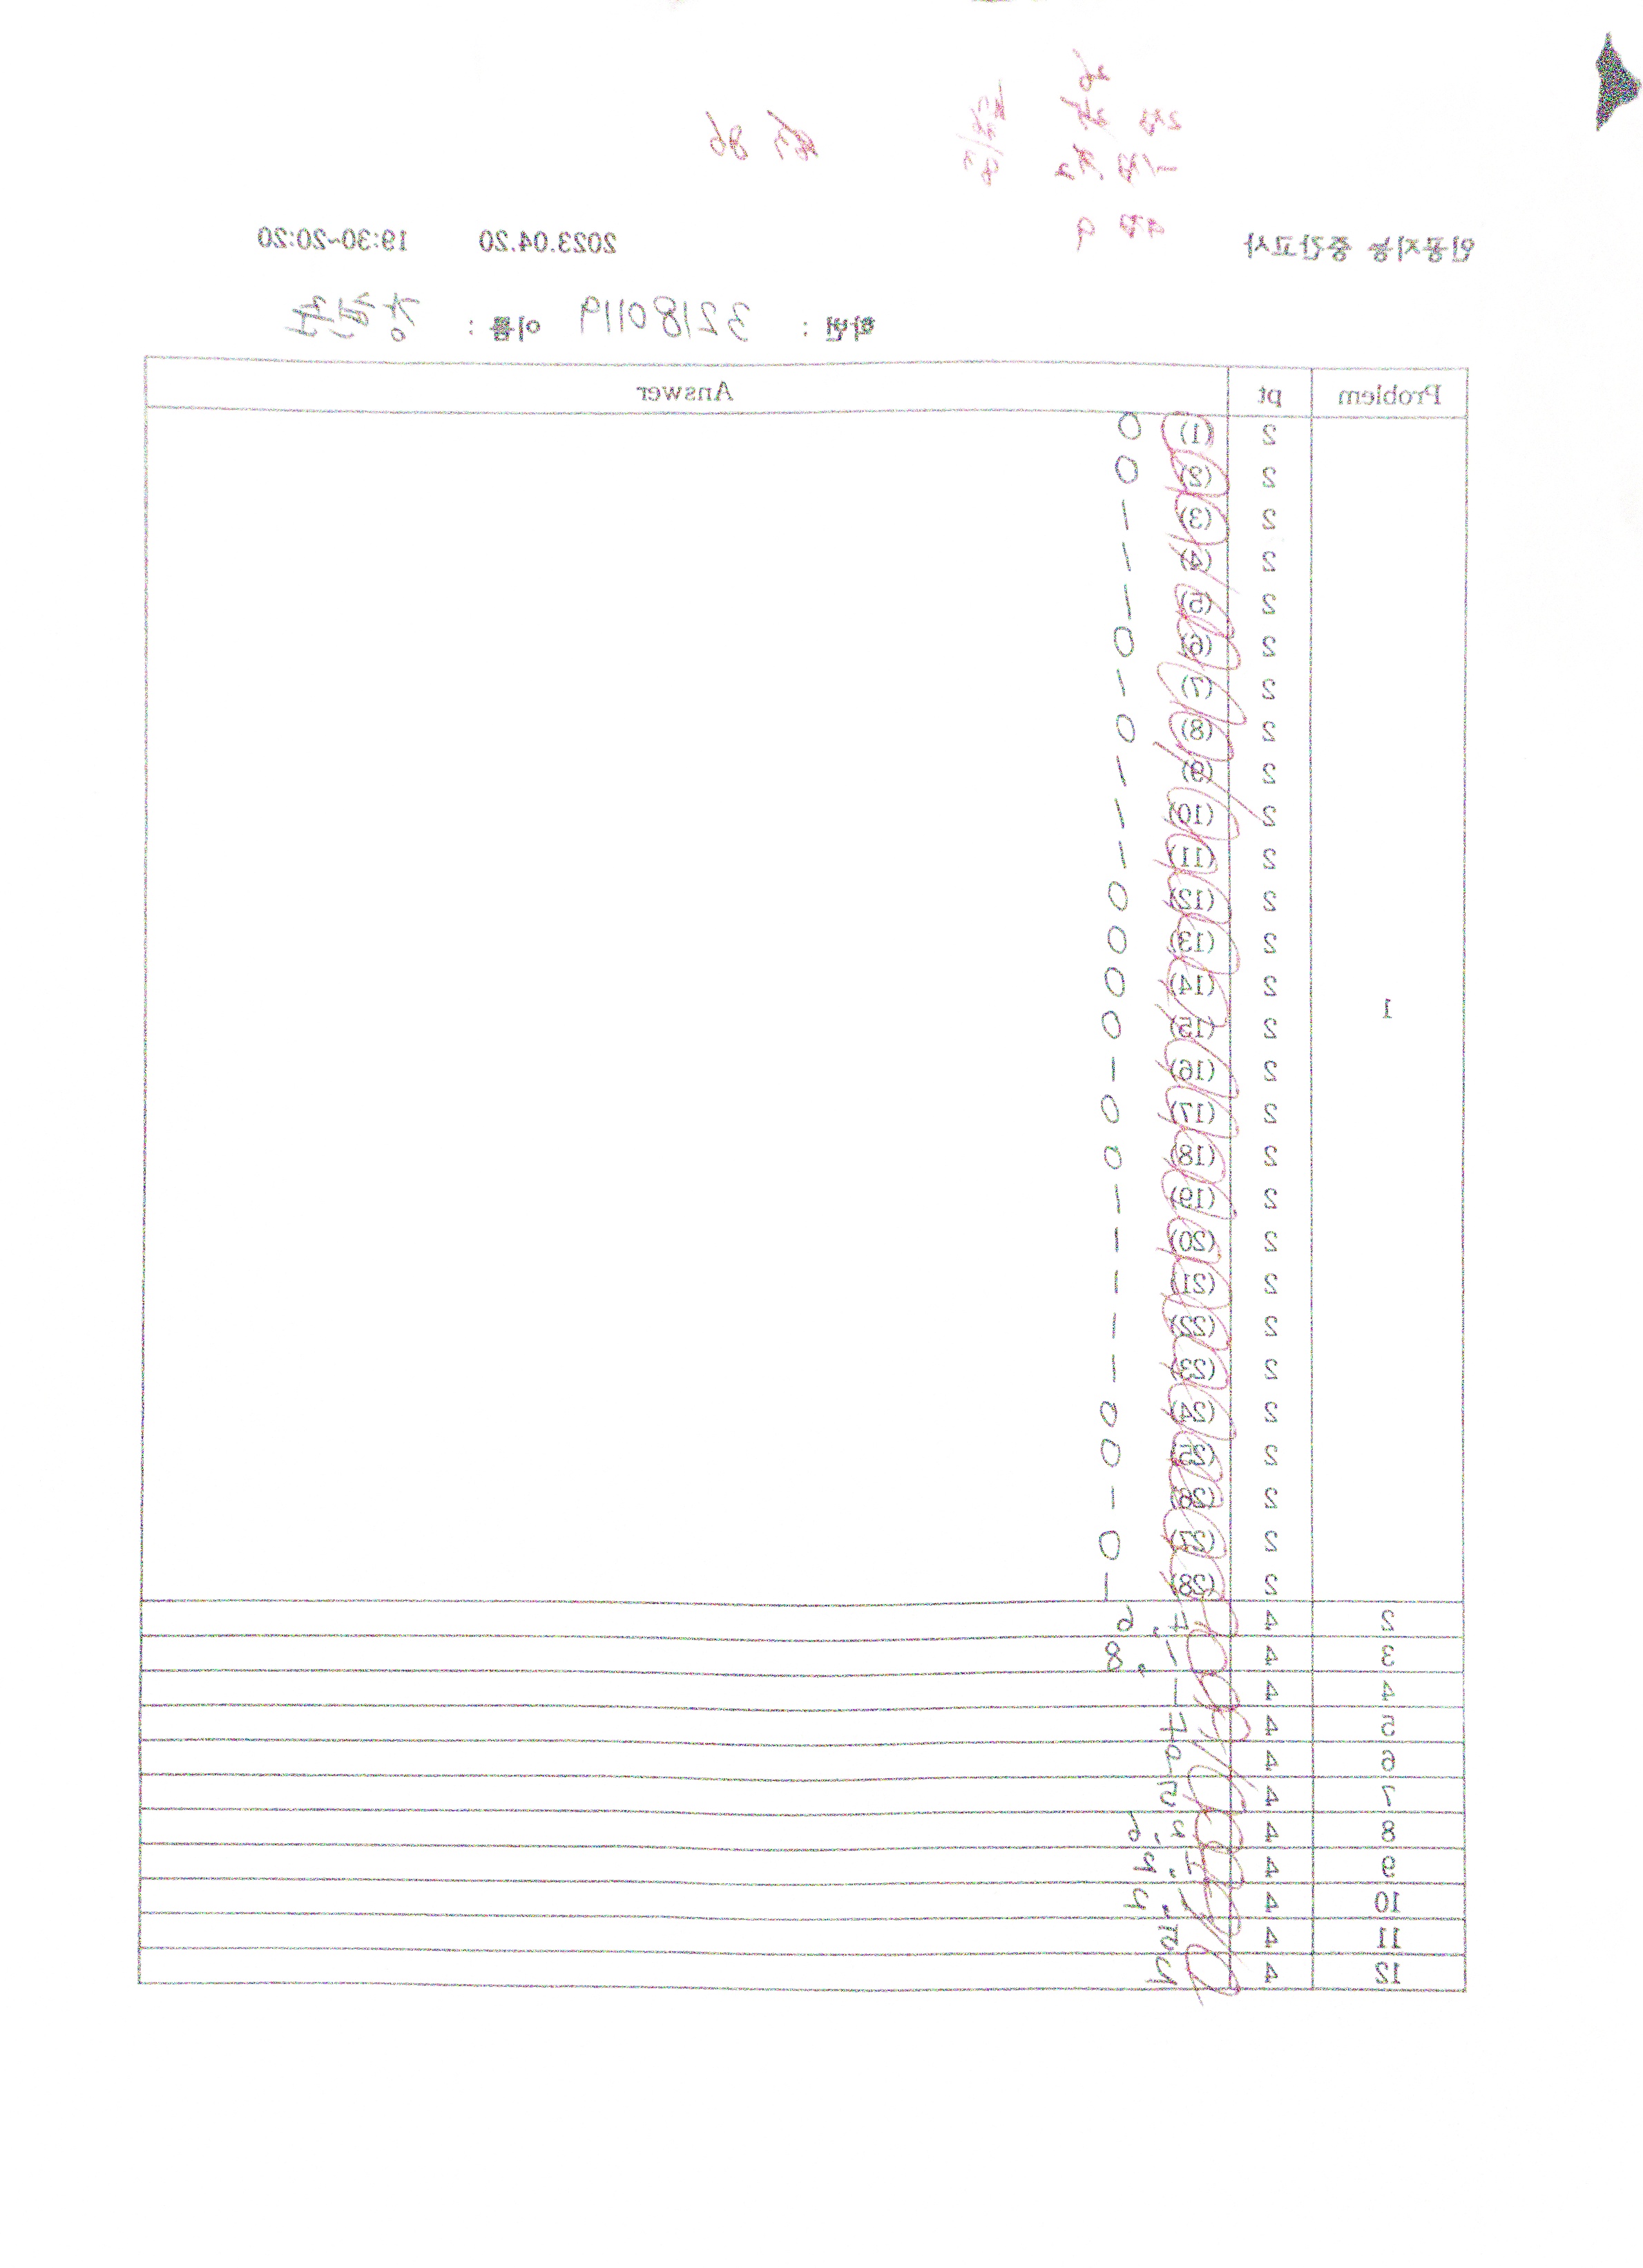 86
인공지능 중간고사 2023.04.20 19:30~20:20
학번 : 32180119 이름 :
Problem pt Answer
1
2 (1) 0
2 (2) 0
2 (3) 1
2 (4) 1
2 (5) 1
2 (6) 0
2 (7) 1
2 (8) 0
2 (9) 1
2 (10) 1
2 (11) 1
2 (12) 0
2 (13) 0
2 (14) 0
2 (15) 0
2 (16) 1
2 (17) 0
2 (18) 0
2 (19) 1
2 (20) 1
2 (21) 1
2 (22) 1
2 (23) 1
2 (24) 0
2 (25) 0
2 (26) 1
2 (27) 0
2 (28) 1
2 4 7, 6
3 4 1, 8
4 4 1
5 4 7
6 4 9
7 4 5
8 4 2, 6
9 4
10 4
11 4
12 4